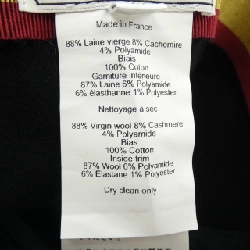 Made in France
88% Laine vierge 8% Cachemire
4% Polyamide
Biais
100% Coton
Garniture intérieure
87% Laine 6% Polyamide
6% élasthanne 1% Polyester
Nettoyage à sec
88% Virgin wool 8% Cashmere
4% Polyamide
Bias
100% Cotton
Inside trim
87% Wool 6% Polyamide
6% Elastane 1% Polyester
Dry clean only